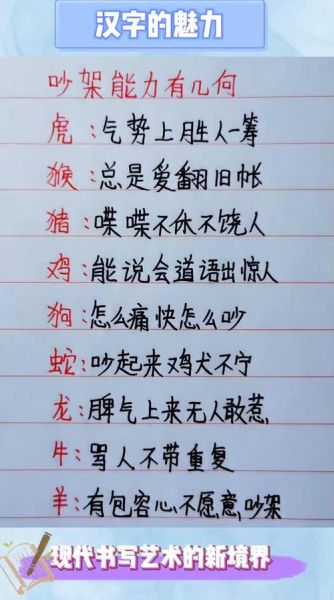 汉字的魅力
吵架能力有几何
虎:气势上胜人一筹
猴:总是爱翻旧帐
猪:喋喋不休不饶人
鸡:能说会道语出惊人
狗:怎么痛快怎么吵
蛇:吵起来鸡犬不宁
龙:脾气上来无人敢惹
牛:骂人不带重复
羊:有包容心不愿意吵架
现代书写艺术的新境界